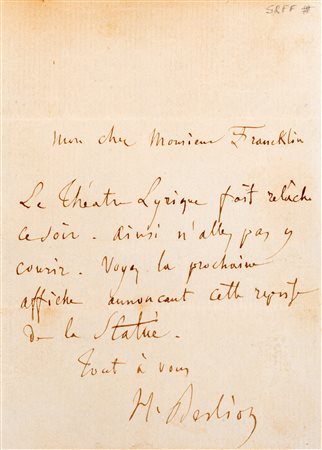 SRFF #
Mon cher Monsieur Francklin
Le Théatre Lyrique fait relâche
ce soir. ainsi n'allez pas y
courir. Voyez la prochaine
affiche annonçant cette reprise
de la Statue.
Tout à vous
H. Berlioz